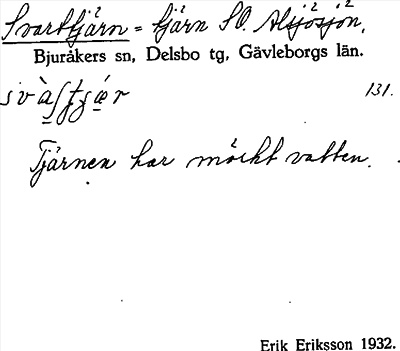 Svarttjärn = tjärn SO. Alsjösjön,
Bjuråkers sn, Delsbo tg, Gävleborgs län.
131.
Tjärnen har mörkt vatten.
Erik Eriksson 1932.